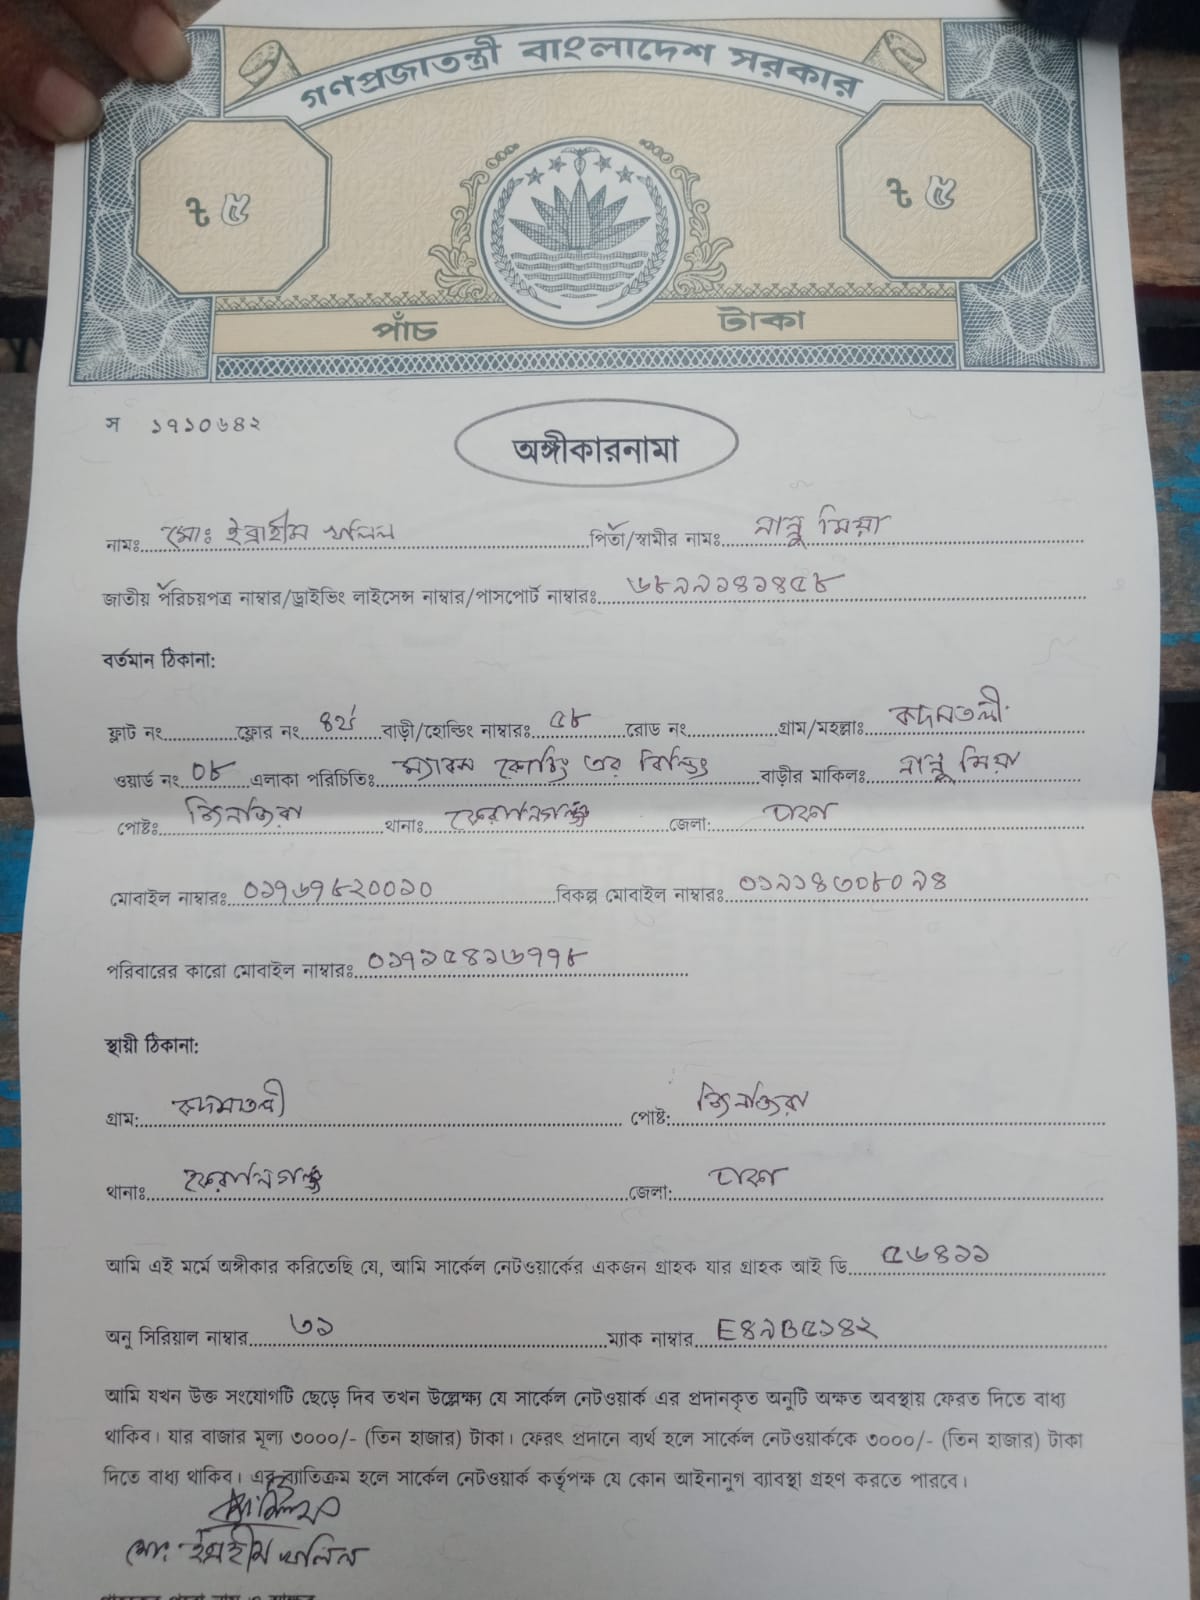 গণপ্রজাতন্ত্রী বাংলাদেশ সরকার
৳ ৫ ৳ ৫
পাঁচ টাকা
স ১৭১০৬৪২
অঙ্গীকারনামা
নামঃ মোঃ ইব্রাহীম খলিল পিতা/স্বামীর নামঃ নান্নু মিয়া
জাতীয় পরিচয়পত্র নাম্বার/ড্রাইভিং লাইসেন্স নাম্বার/পাসপোর্ট নাম্বারঃ ৬৮৯৯১৪১৪৫৮
বর্তমান ঠিকানা:
ফ্লাট নং ফ্লোর নং ৪র্থ বাড়ী/হোল্ডিং নাম্বারঃ ৫৮ রোড নং গ্রাম/মহল্লাঃ কদমতলী
ওয়ার্ড নং ০৮ এলাকা পরিচিতিঃ কোচিং এর বিল্ডিং বাড়ীর মাকিলঃ নান্নু মিয়া
পোষ্টঃ জিনজিরা থানাঃ কেরানিগঞ্জ জেলা: ঢাকা
মোবাইল নাম্বারঃ ০১৭৬৭৮২০০১০ বিকল্প মোবাইল নাম্বারঃ ০১৯১৪৩০৮০৯৪
পরিবারের কারো মোবাইল নাম্বারঃ ০১৭১৫৪১৬৭৭৮
স্থায়ী ঠিকানা:
গ্রাম: কদমতলী পোষ্ট: জিনজিরা
থানাঃ কেরানিগঞ্জ জেলা: ঢাকা
আমি এই মর্মে অঙ্গীকার করিতেছি যে, আমি সার্কেল নেটওয়ার্কের একজন গ্রাহক যার গ্রাহক আই ডি ৫৬৪১১
অনু সিরিয়াল নাম্বার ৩১ ম্যাক নাম্বার E৪৯B৫১৪২
আমি যখন উক্ত সংযোগটি ছেড়ে দিব তখন উল্লেক্ষ্য যে সার্কেল নেটওয়ার্ক এর প্রদানকৃত অনুটি অক্ষত অবস্থায় ফেরত দিতে বাধ্য
থাকিব। যার বাজার মূল্য ৩০০০/- (তিন হাজার) টাকা। ফেরৎ প্রদানে ব্যর্থ হলে সার্কেল নেটওয়ার্ককে ৩০০০/- (তিন হাজার) টাকা
দিতে বাধ্য থাকিব। এর ব্যাতিক্রম হলে সার্কেল নেটওয়ার্ক কর্তৃপক্ষ যে কোন আইনানুগ ব্যাবস্থা গ্রহণ করতে পারবে।
মোঃ ইব্রাহীম খলিল